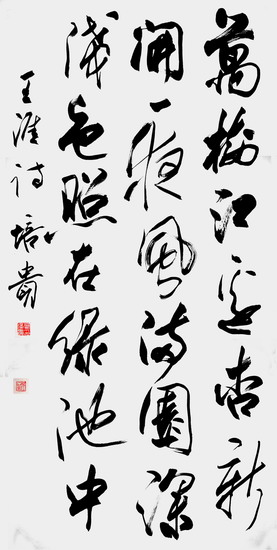 萬樹江邊杏新
開一夜風滿園深
淺色照在綠池中
王涯詩 培貴